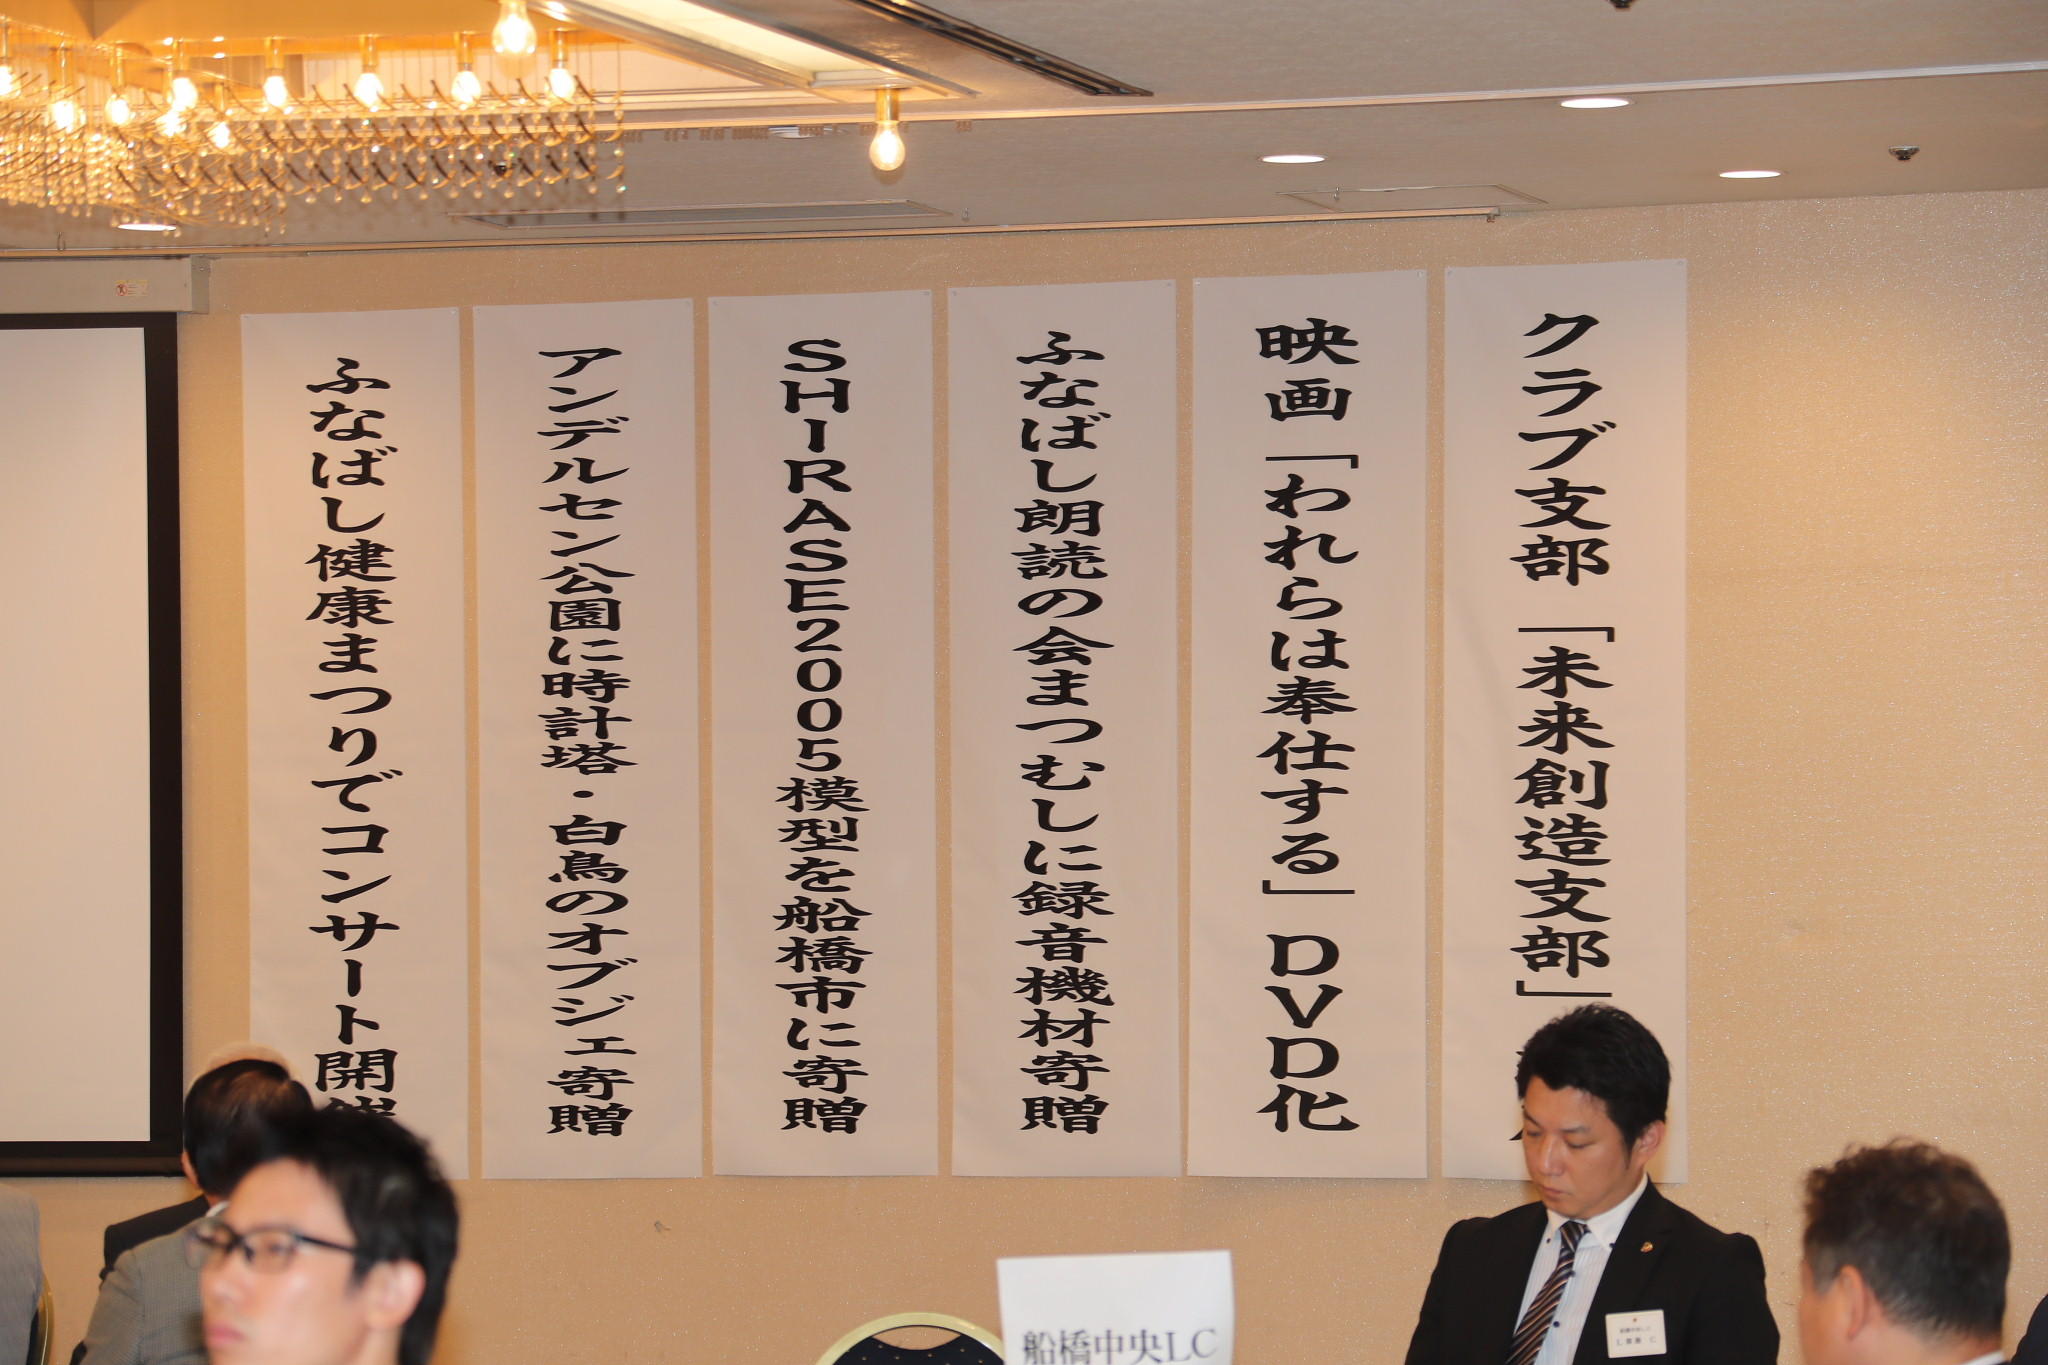 クラブ支部「未来創造支部」
映画「われらは奉仕する」DVD化
ふなばし朗読の会まつむしに録音機材寄贈
SHIRASE2005模型を船橋市に寄贈
アンデルセン公園に時計塔・白鳥のオブジェ寄贈
ふなばし健康まつりでコンサート開催
船橋中央LC